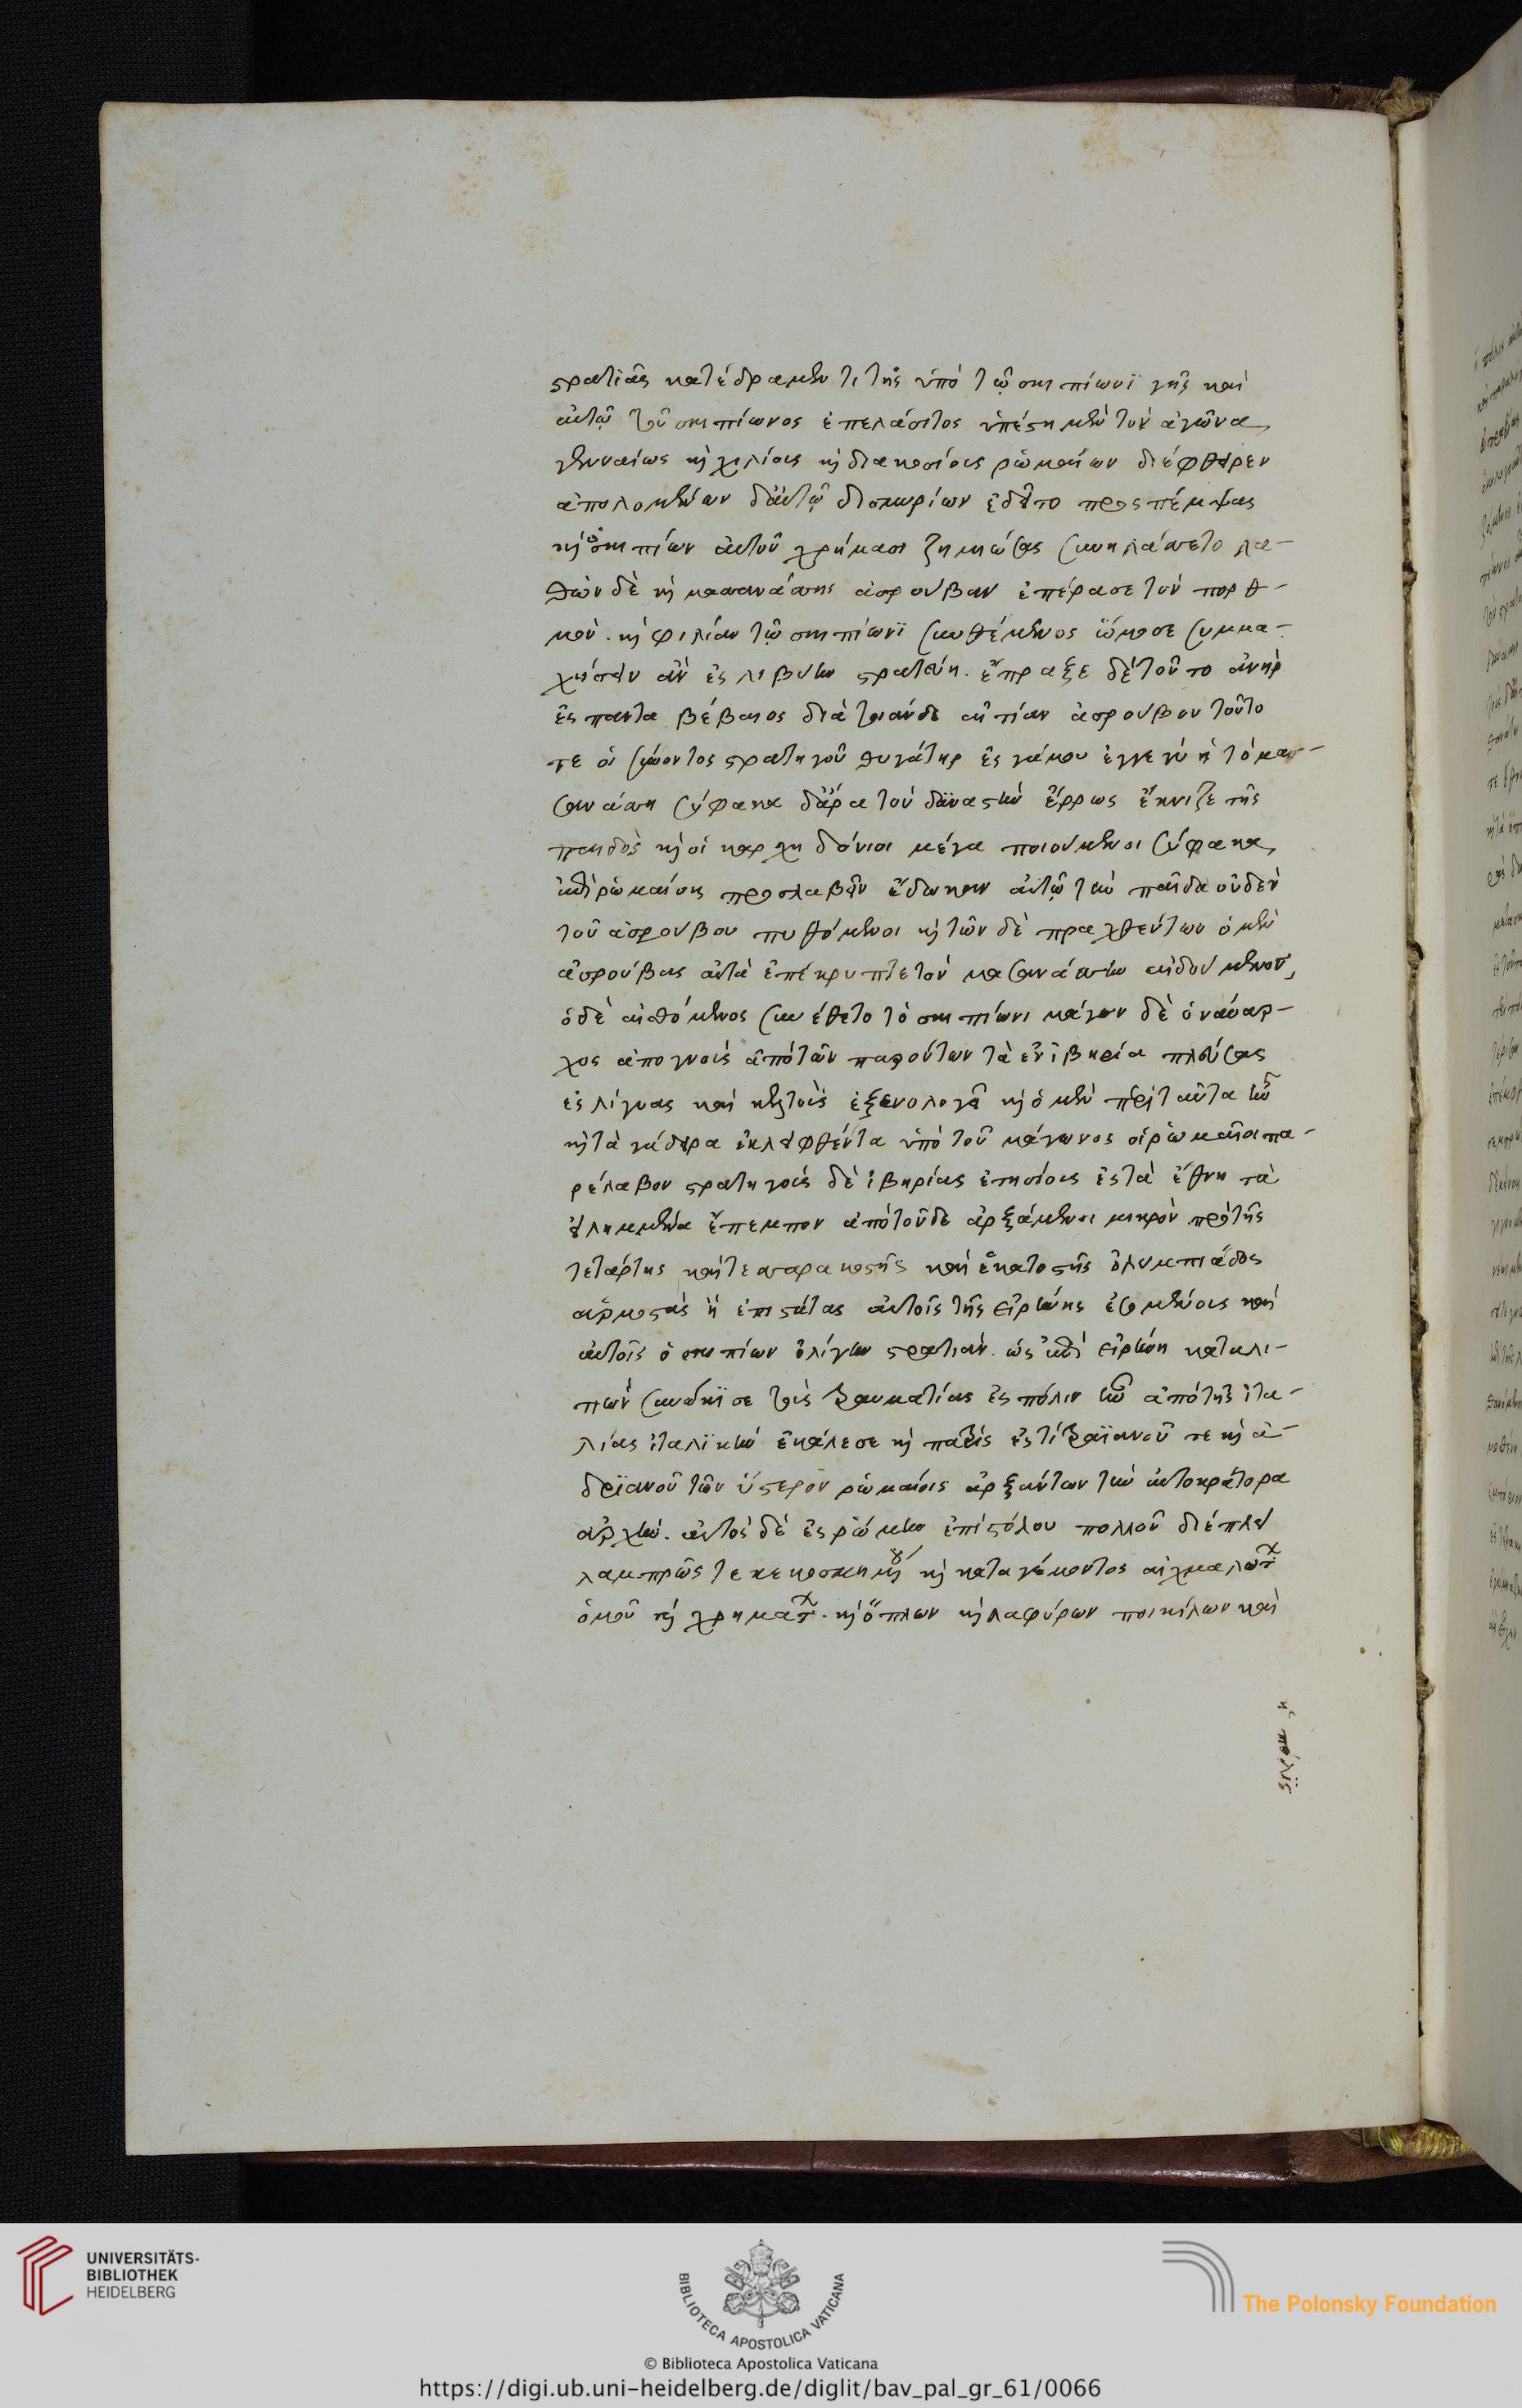 στρατιᾶς κατέδραμέν τι τῆς ὑπὸ τῷ σκιπίωνϊ γῆς καὶ
αὐτῷ τοῦ σκιπίωνος ἐπελάσαντος ὑπέστη μὲν τὸν ἀγῶνα
γενναίως κὶ χιλίους κὶ διακοσίους ῥωμαίων διέφθειρεν
ἀπολομένων δ' αὐτῷ δισμυρίων ἐδεῖτο προσπέμψας
κὶ ὁ σκιπίων αὐτὸν χρήμασι ζημιώσας συνηλάσσετο λα-
θὼν δὲ κὶ μασσανάσσης ἀσρούβαν ἐπέρασε τὸν πορθ-
μὸν. κὶ φιλίαν τῷ σκιπίωνϊ συνθέμενος ὤμοσε συμμα-
χήσειν ἂν ἐς λιβύην στρατεύῃ. ἔπραξε δὲ τοῦτο ἀνὴρ
ἐς πάντα βέβαιος διὰ τοιάνδε αἰτίαν ἀσρούβου τοῦ το-
τε οἱ συνόντος στρατηγοῦ θυγάτηρ ἐς γάμον ἐγγεγύητο μασ-
σανάσσῃ σύφακα δ' ἄρα τὸν δυνάστην ἔρρως ἔκνιζε τῆς
παιδὸς κὶ οἱ καρχηδόνιοι μέγα ποιούμενοι σύφακα
ἐπὶ ῥωμαίους προσλαβεῖν ἔδωκαν αὐτῷ τὴν παῖδα οὐδὲν
τοῦ ἀσρούβου πυθόμενοι κὶ τῶν δὲ πραχθέντων ὁ μὲν
ἀσρούβας αὐτὰ ἐπέκρυπτε τὸν μασσανάσσην αἰδούμενος,
ὁ δὲ αἰσθόμενος συνέθετο τῷ σκιπίωνι μάγων δὲ ὁ ναύαρ-
χος ἀπογνοὺς ἀπὸ τῶν παρόντων τὰ ἐν ἰβηρία πλεύσας
ἐς λίγυας καὶ κελτοὺς ἐξενολόγει κὶ ὁ μὲν περὶ ταῦτα ἦν
κὶ τὰ γάδειρα ἐκλειφθέντα ὑπὸ τοῦ μάγωνος οἱ ῥωμαῖοι πα-
ρέλαβον στρατηγοὺς δὲ ἰβηρίας ἐτησίους ἐς τὰ ἔθνη τὰ
εἰλημμένα ἔπεμπον ἀπὸ τοῦδε ἀρξάμενοι μικρὸν πρὸ τῆς
τετάρτης καὶ τεσσαρακοστῆς καὶ ἑκατοστῆς ὀλυμπιάδος
ἁρμοστὰς ἢ ἐπιστάτας αὐτοῖς τῆς εἰρήνης ἐσομένους καὶ
αὐτοῖς ὁ σκιπίων ὀλίγην στρατιὰν. ὡς ἐπὶ εἰρήνη καταλι-
πὼν συνώκϊσε τοὺς τραυματίας ἐς πόλιν ἣν ἀπὸ τῆς ἰτα-
λίας ἰταλϊκὴν ἐκάλεσε κὶ πατρίς ἐστι τραϊανοῦ τε κὶ ἀ-
δριανοῦ τῶν ὕστερον ῥωμαίοις ἀρξάντων τὴν αὐτοκράτορα
ἀρχὴν. αὐτὸς δὲ ἐς ῥώμην ἐπὶ στόλου πολλοῦ διέπλει
λαμπρῶς τε κεκοσμημένου κὶ καταγέμοντος αἰχμαλώτων
ὁμοῦ κὶ χρημάτων. κὶ ὅπλων κὶ λαφύρων ποικίλων καὶ
κὶ ἡ πόλις
UNIVERSITÄTS-
BIBLIOTHEK
HEIDELBERG
BIBLIOTECA APOSTOLICA VATICANA
© Biblioteca Apostolica Vaticana
The Polonsky Foundation
https://digi.ub.uni-heidelberg.de/diglit/bav_pal_gr_61/0066